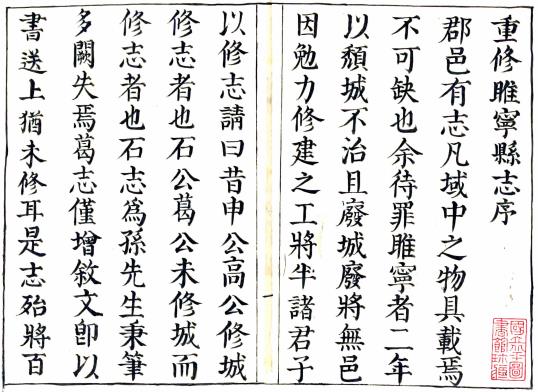 重修睢寧縣志序
郡邑有志凡域中之物具載焉
不可缺也余待罪睢寧者二年
以頽城不治且廢城廢將無邑
因勉力修建之工將半諸君子
以修志請曰昔申公高公修城
修志者也石公葛公未修城而
修志者也石志為孫先生秉筆
多闕失焉葛志僅增敘文卽以
書送上猶未修耳是志殆將百
一